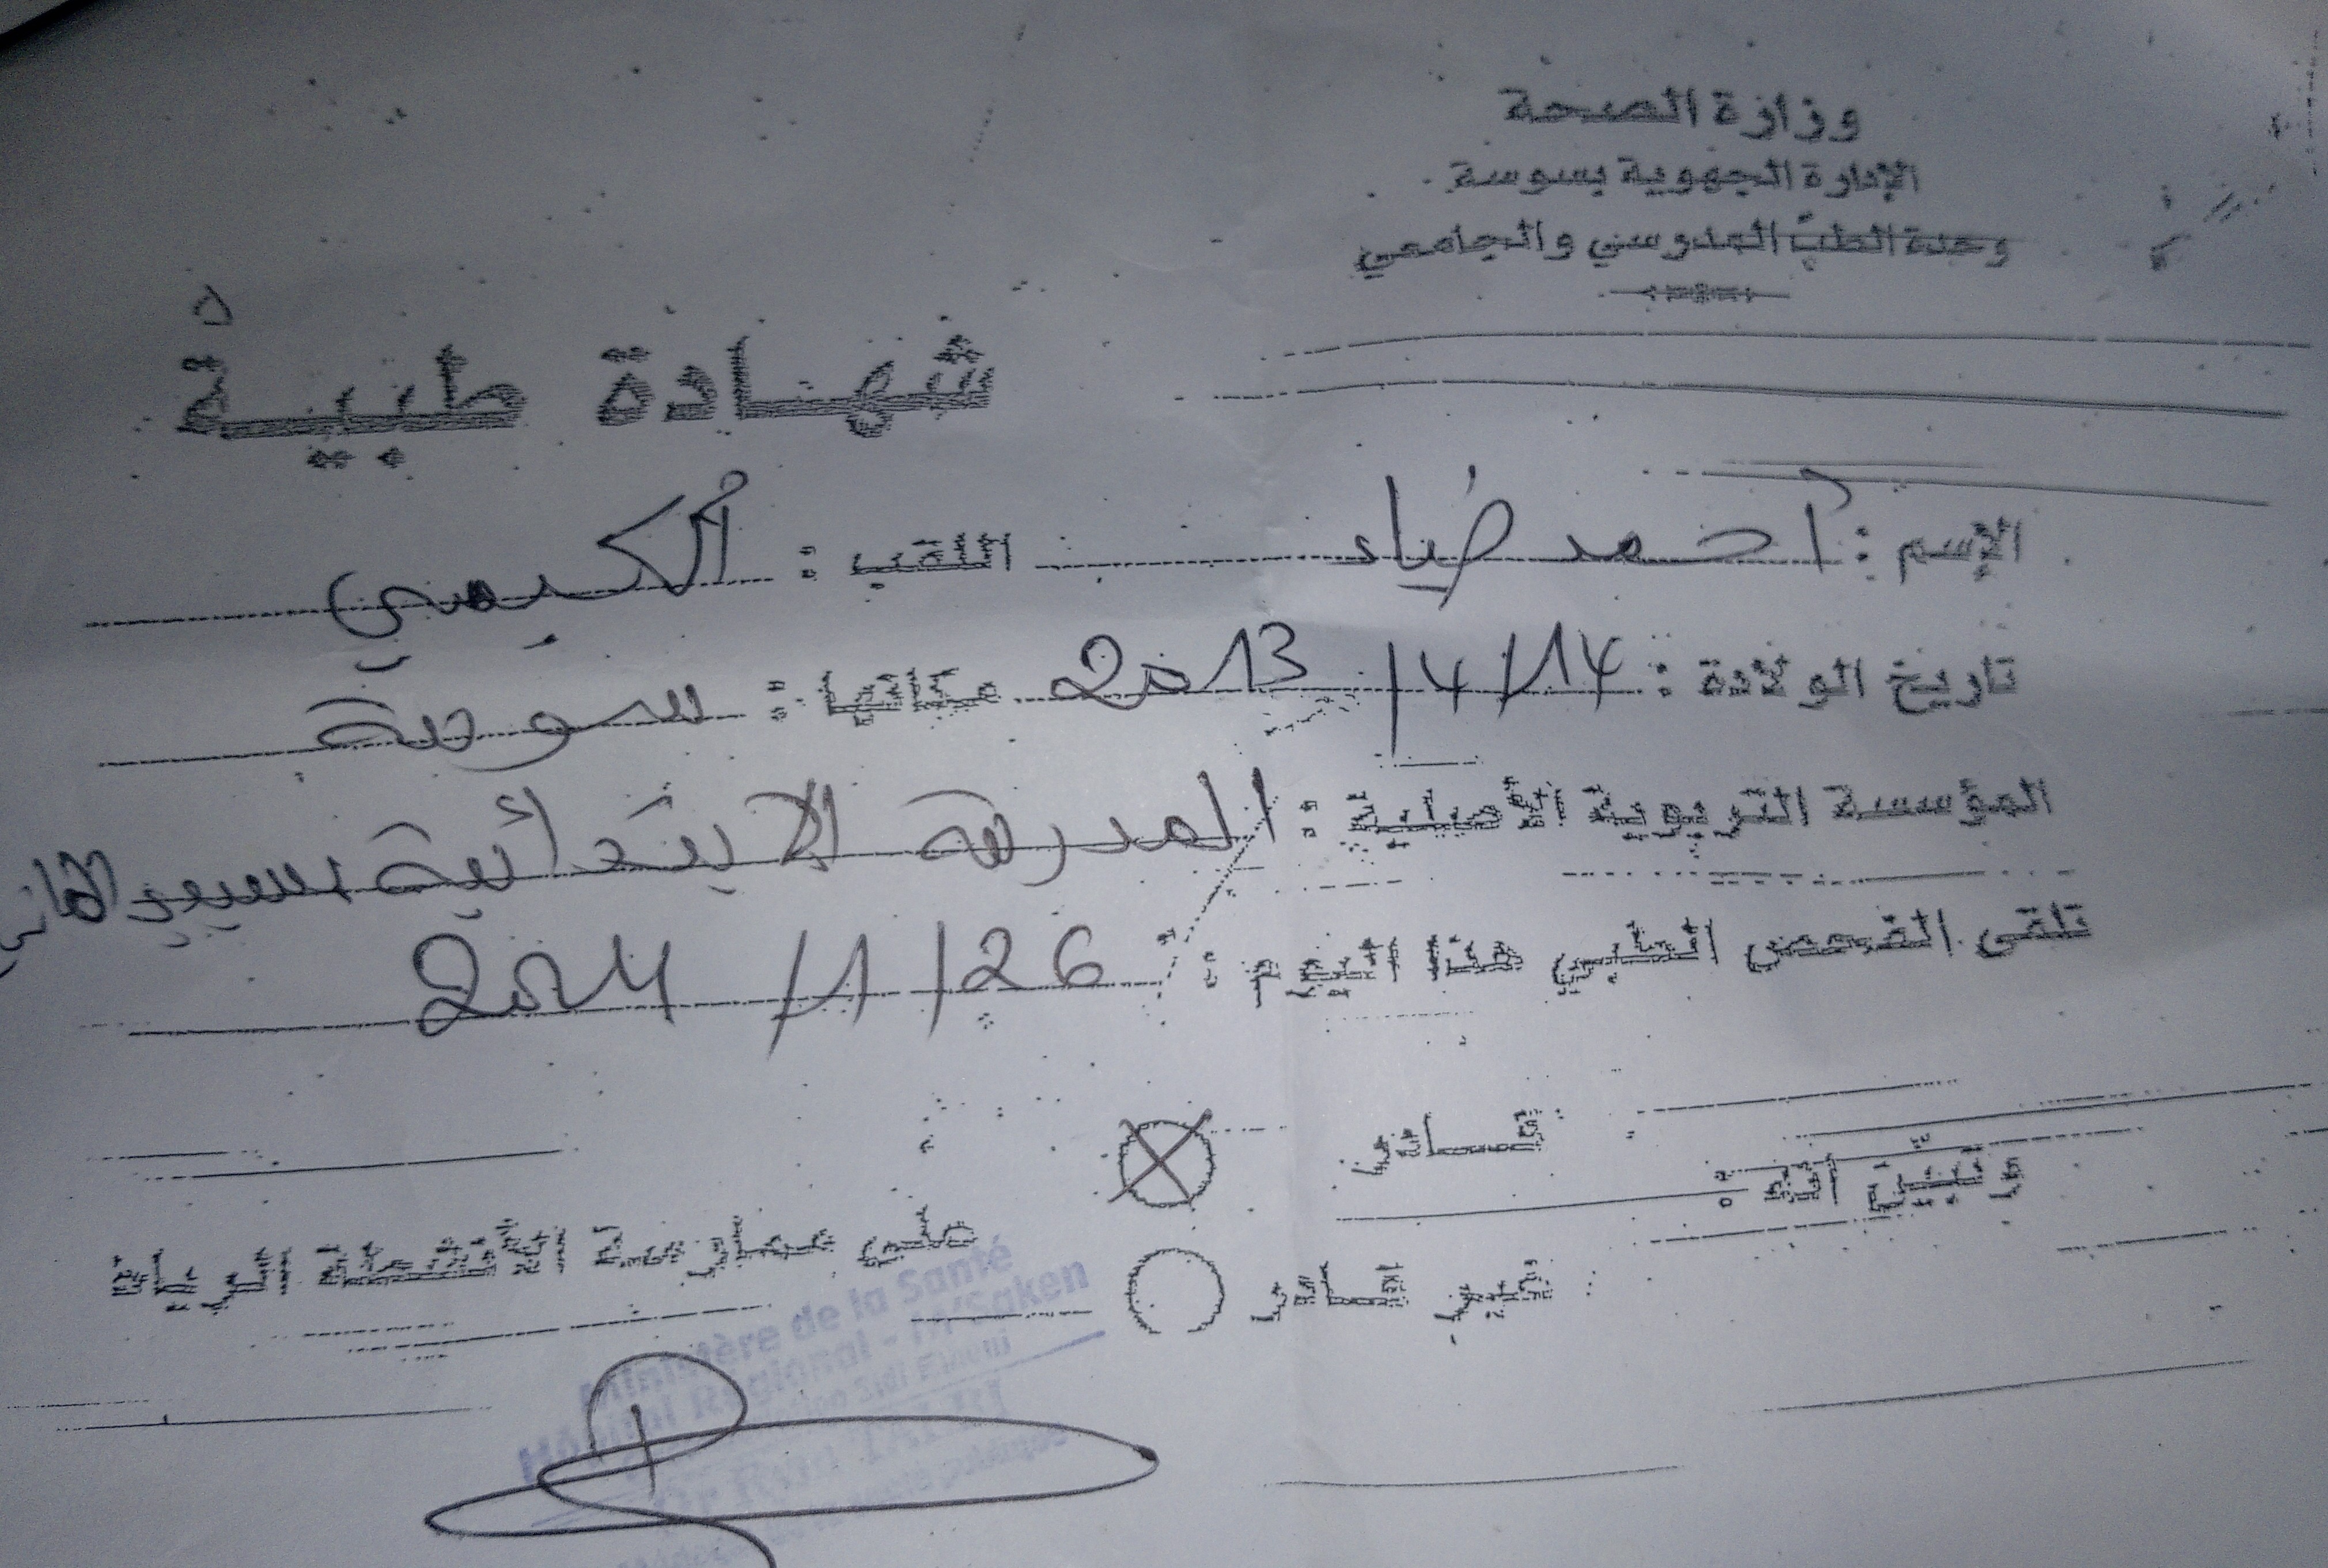 وزارة الصحة
الإدارة الجهوية بسوسة
وحدة الطبّ المدرسي والجامعي
شهادة طبية
الإسم : أحمد ضياء اللقب : الكيمي
تاريخ الولادة : 14/4/2013 مكانها : سوسة
المؤسسة التربوية الأصلية : المدرسة الابتدائية بسيدي الهاني
تلقى الفحص الطبي هذا اليوم : 26/1/2024
وتبيّن أنّه :
قادر
غير قادر
على ممارسة الأنشطة الرياة
Ministère de la Santé
Hôpital Régional - M'Saken
Sidi Elhani
Dr
santé publique